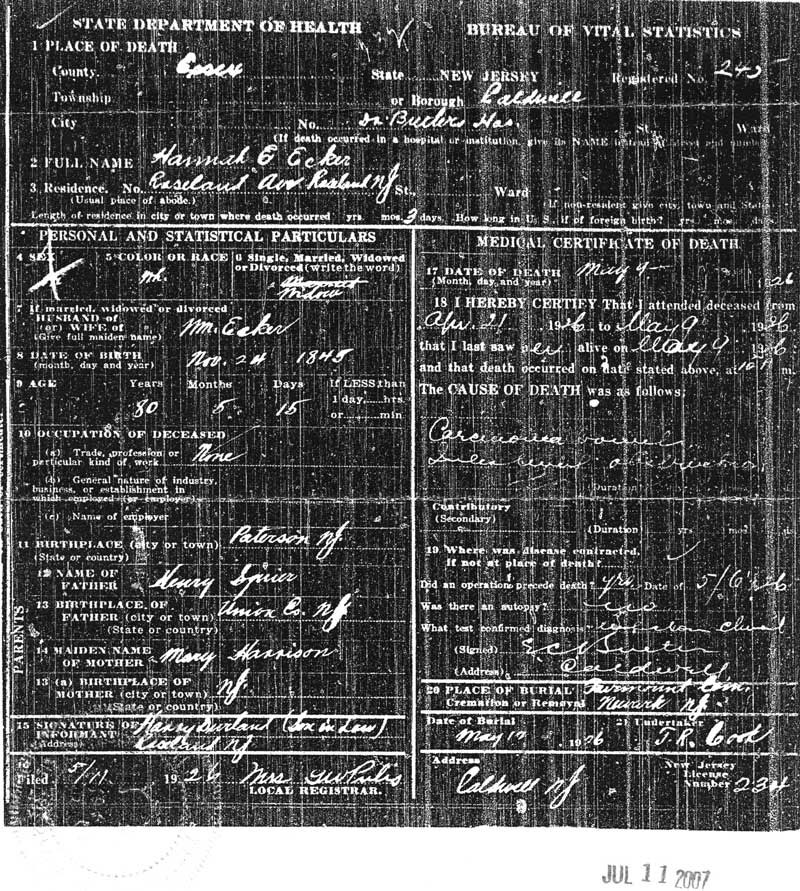 STATE DEPARTMENT OF HEALTH
BUREAU OF VITAL STATISTICS
1 PLACE OF DEATH
County Essex State NEW JERSEY Registered No. 245
Township or Borough Caldwell
City No. Dr Butlers Hos. St., Ward
(If death occurred in a hospital or institution, give its NAME instead of street and number)
2 FULL NAME Hannah E Ecker
3 Residence. No. Roseland Ave Roseland NJ St., Ward
(Usual place of abode.) If non-resident give city, town and State
Length of residence in city or town where death occurred yrs. mos. 3 days. How long in U. S., if of foreign birth? yrs. mos. days.
PERSONAL AND STATISTICAL PARTICULARS
4 SEX 5 COLOR OR RACE 6 Single, Married, Widowed
or Divorced (write the word)
Widow
7 If married, widowed or divorced
HUSBAND of
(or) WIFE of Wm. Ecker
(Give full maiden name)
8 DATE OF BIRTH Nov. 24 1845
(month, day and year)
9 AGE Years Months Days If LESS than
1 day, hrs.
80 5 15 or min
10 OCCUPATION OF DECEASED
(a) Trade, profession or None
particular kind of work
(b) General nature of industry,
business, or establishment in
which employed (or employer)
(c) Name of employer
11 BIRTHPLACE (city or town) Paterson NJ
(State or country)
PARENTS
12 NAME OF
FATHER Henry Spier
13 BIRTHPLACE OF
FATHER (city or town) Union Co. NJ
(State or country)
14 MAIDEN NAME
OF MOTHER Mary Harrison
13 (a) BIRTHPLACE OF
MOTHER (city or town) NJ.
(State or country)
15 SIGNATURE OF Harry Durland (Son in Law)
INFORMANT
(Address) Roseland NJ
Filed 5/11 1926 Mrs
LOCAL REGISTRAR.
MEDICAL CERTIFICATE OF DEATH
17 DATE OF DEATH May 9 1926
(Month, day, and year)
18 I HEREBY CERTIFY That I attended deceased from
Apr. 21 1926 to May 9 1926
that I last saw her alive on May 9 1926
and that death occurred on date stated above, at m.
The CAUSE OF DEATH was as follows:
Carcinoma bowel
obstruction
(Duration)
Contributory
(Secondary)
(Duration) yrs. mos. ds.
19 Where was disease contracted,
if not at place of death?
Did an operation precede death? yes Date of 5/6/26
Was there an autopsy?
What test confirmed diagnosis
(Signed) E C Butler
(Address) Caldwell
20 PLACE OF BURIAL Fairmount Cem.
Cremation or Removal Newark NJ.
Date of Burial 21 Undertaker
May 12 1926 J.R. Cook
Address New Jersey
License
Caldwell NJ Number 234
JUL 11 2007